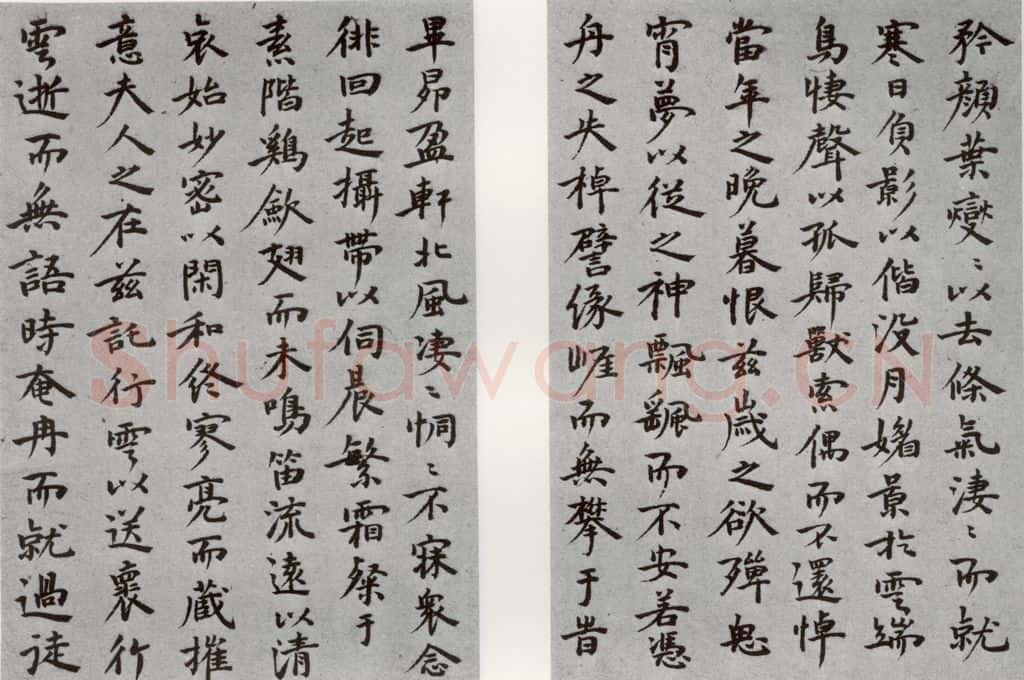 矜顏葉燮〻以去條氣淒〻而就
寒日負影以偕没月媚景於雲端
鳥悽聲以孤歸獸索偶而不還悼
當年之晚暮恨茲歲之欲殫思
宵夢以從之神飄颻而不安若憑
舟之失棹譬緣崕而無攀于旹
畢昴盈軒北風凄〻恫〻不寐衆念
徘回起攝帶以伺晨繁霜粲于
素階鷄歛翅而未鳴笛流遠以清
哀始妙密以閑和終寥亮而藏摧
意夫人之在兹託行雲以送褱行
雲逝而無語時奄冉而就過徒
Shufawang.CN